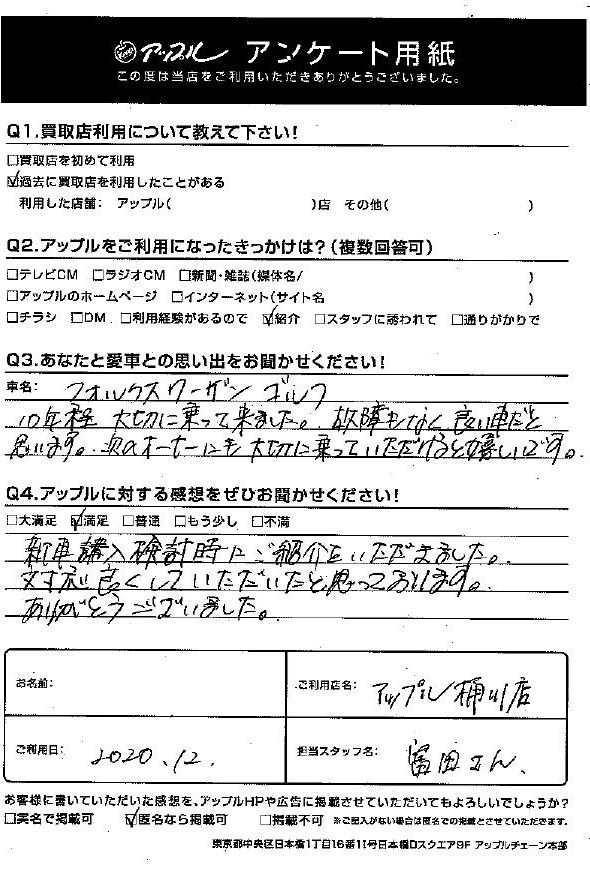 アップル アンケート用紙
この度は当店をご利用いただきありがとうございました。
Q1.買取店利用について教えて下さい!
□買取店を初めて利用
☑過去に買取店を利用したことがある
利用した店舗: アップル( )店 その他( )
Q2.アップルをご利用になったきっかけは?(複数回答可)
□テレビCM □ラジオCM □新聞・雑誌(媒体名/ )
□アップルのホームページ □インターネット(サイト名 )
□チラシ □DM □利用経験があるので ☑紹介 □スタッフに誘われて □通りがかりで
Q3.あなたと愛車との思い出をお聞かせください!
車名: フォルクスワーゲン ゴルフ
10年程 大切に乗って来ました。故障もなく良い車だと
思います。次のオーナーにも大切に乗っていただけると嬉しいです。
Q4.アップルに対する感想をぜひお聞かせください!
□大満足 ☑満足 □普通 □もう少し □不満
新車購入検討時にご紹介をいただきました。
対応良くしていただいたと思っております。
ありがとうございました。
お名前:
ご利用店名: アップル桶川店
ご利用日: 2020.12.
担当スタッフ名: 冨田さん
お客様に書いていただいた感想を、アップルHPや広告に掲載させていただいてもよろしいでしょうか?
□実名で掲載可 ☑匿名なら掲載可 □掲載不可 ※ご記入がない場合は匿名での掲載とさせていただきます。
東京都中央区日本橋1丁目16番11号日本橋Dスクエア9F アップルチェーン本部